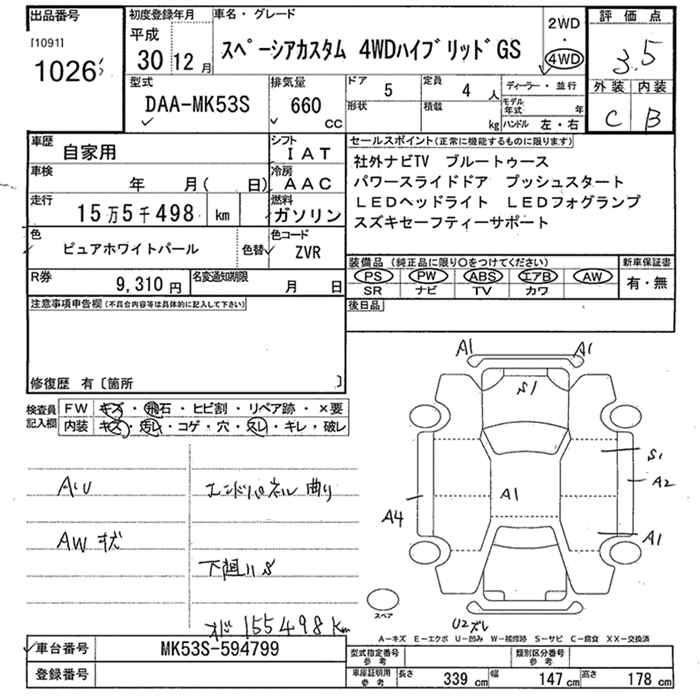 出品番号
[1091]
1026
初度登録年月
平成
30 12 月
車名・グレード
スペーシアカスタム 4WDハイブリッドGS
2WD
・
4WD
評価点
3.5
外装 内装
C B
型式
DAA-MK53S
排気量
660 CC
ドア 5
定員 4 人
形状
積載 kg
ディーラー・並行
モデル年式 年
ハンドル 左・右
車歴
自家用
シフト
IAT
車検
年 月( 日)
冷房
AAC
走行
15万5千498 km
燃料
ガソリン
色
ピュアホワイトパール
色替
色コード
ZVR
R券
9,310 円
名変通知期限
月 日
セールスポイント(正常に機能するものに限ります)
社外ナビTV ブルートゥース
パワースライドドア プッシュスタート
LEDヘッドライト LEDフォグランプ
スズキセーフティーサポート
装備品 (純正品に限り○をつけてください)
PS PW ABS エアB AW
SR ナビ TV カワ
新車保証書
有・無
後日品
注意事項申告欄(不具合内容等は具体的に記入して下さい)
修復歴 有〔箇所 〕
検査員記入欄
FW キズ・飛石・ヒビ割・リペア跡・×要
内装 キズ・汚レ・コゲ・穴・スレ・キレ・破レ
AU
エンドパネル曲り
AWキズ
下廻りS
オド155498km
A1 A1
S1
S1
A2
A1
A4
A1
U2ズレ
スペア
A−キズ E−エクボ U−凹み W−補修跡 S−サビ C−腐食 XX−交換済
車台番号
MK53S-594799
登録番号
型式指定番号 参考
類別区分番号 参考
車庫証明用 参考
長さ 339 cm 幅 147 cm 高さ 178 cm